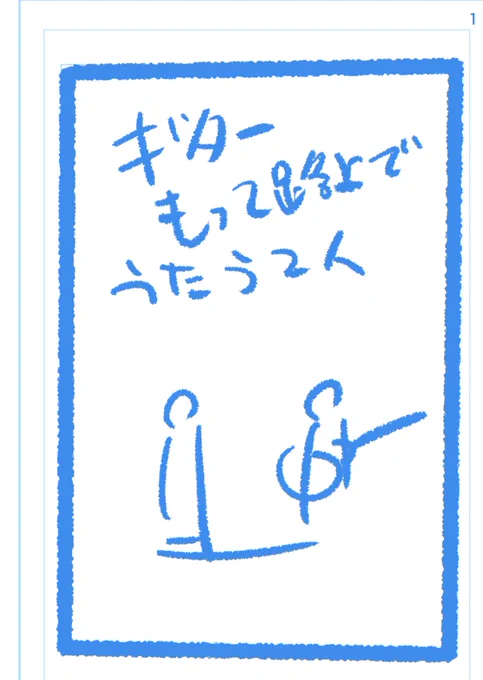 1
ギター
もって路上で
うたう2人